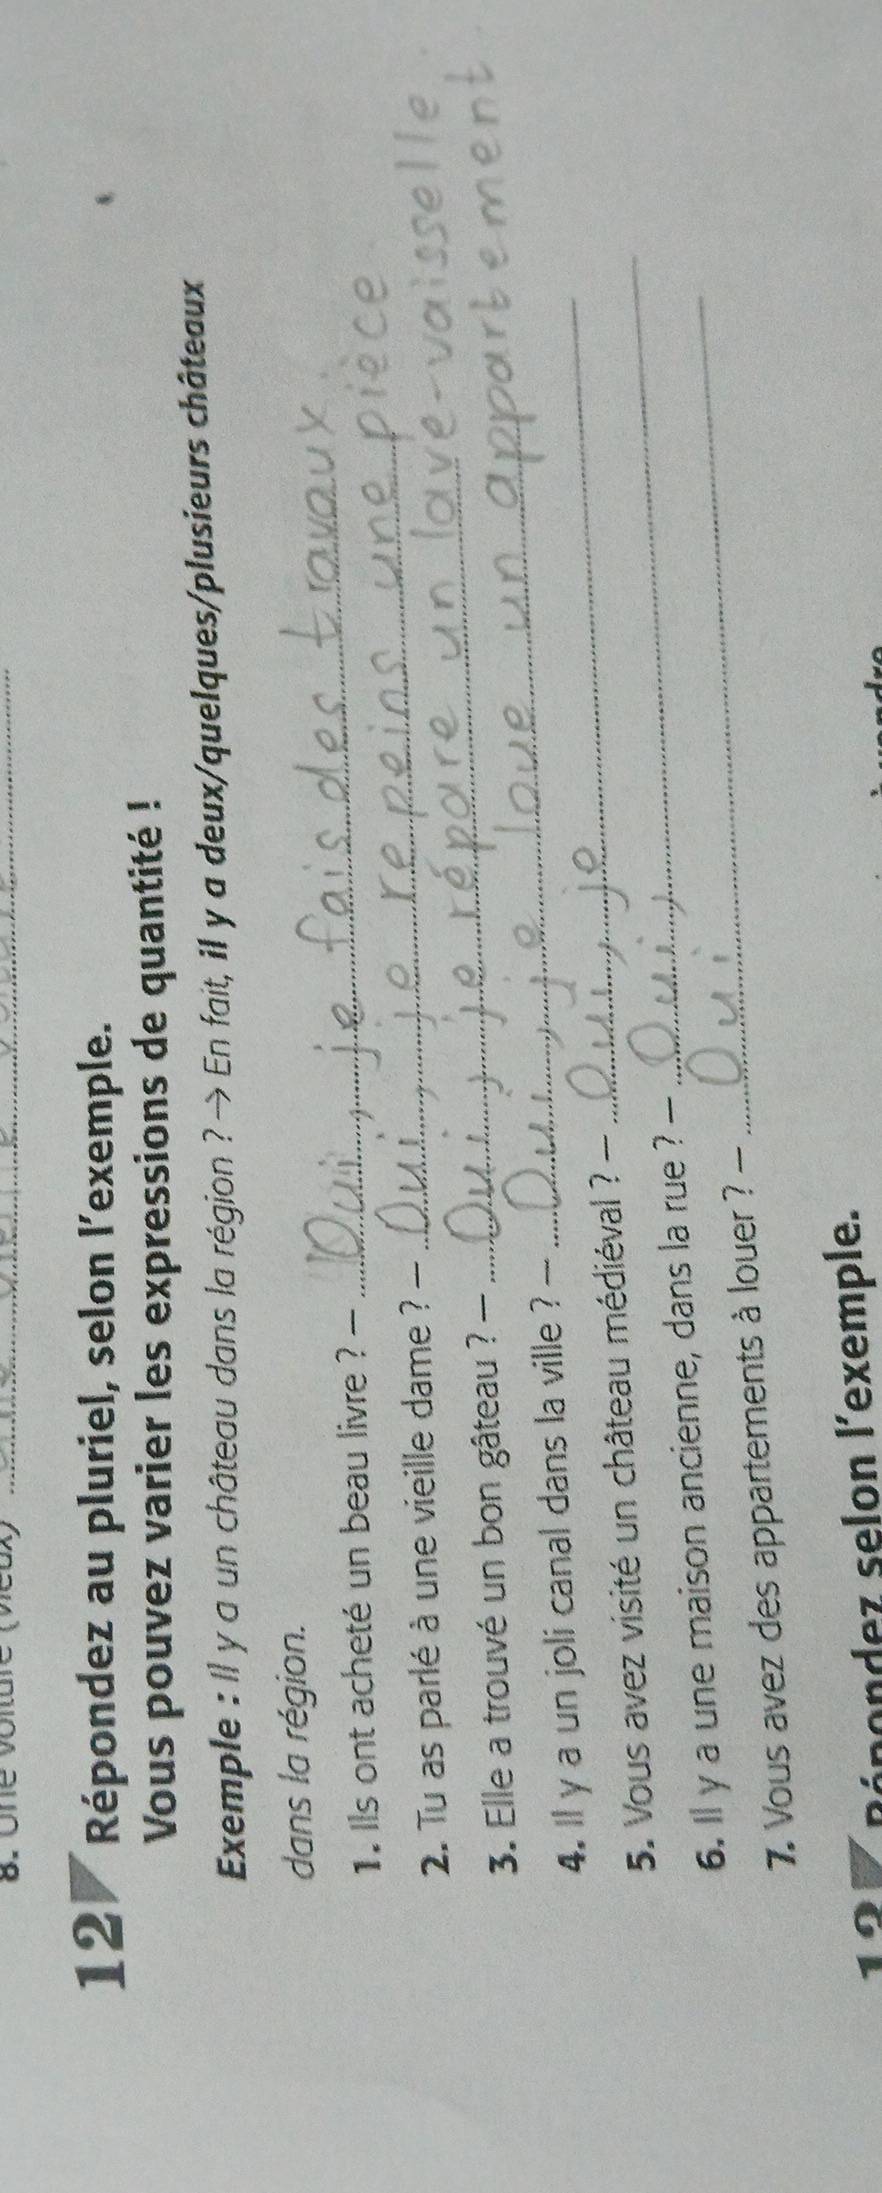 8. Une voiture (vieux)
12 Répondez au pluriel, selon l'exemple.
Vous pouvez varier les expressions de quantité !
Exemple : Il y a un château dans la région ? → En fait, il y a deux/quelques/plusieurs châteaux
dans la région.
1. Ils ont acheté un beau livre ? – Oui, je fais des travaux.
2. Tu as parlé à une vieille dame ? – Oui, je repeins une pièce.
3. Elle a trouvé un bon gâteau ? – Oui, je répare un lave-vaisselle.
4. Il y a un joli canal dans la ville ? – Oui, je loue un appartement.
5. Vous avez visité un château médiéval ? – Oui, je
6. Il y a une maison ancienne, dans la rue ? – Oui,
7. Vous avez des appartements à louer ? – Oui
13 Répondez selon l'exemple.